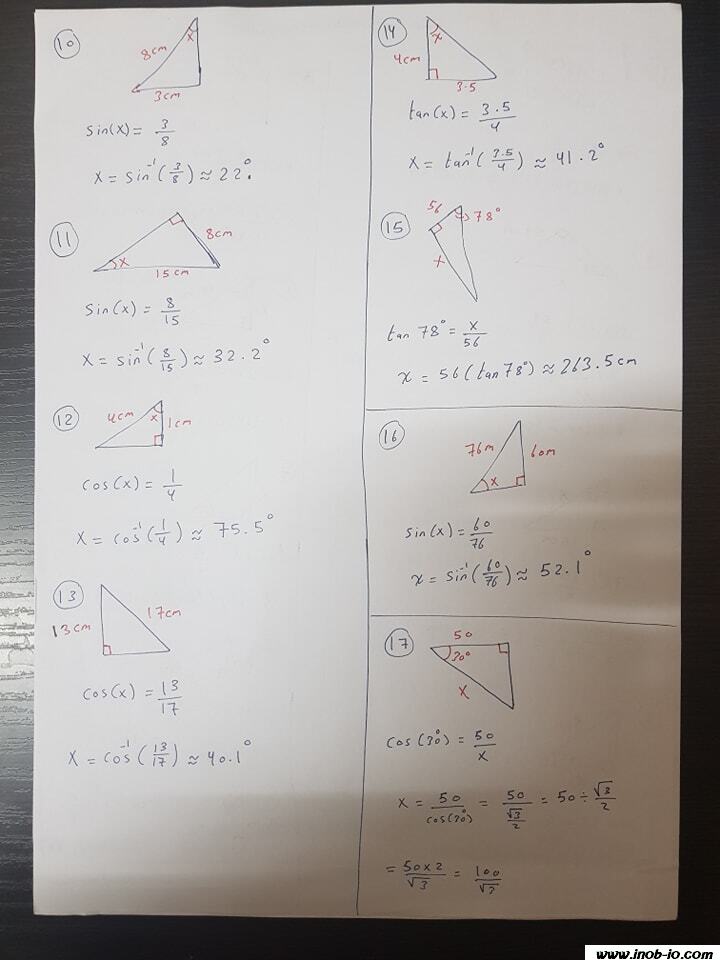 10
8cm
x
3cm
sin(x) = 3/8
x = sin⁻¹(3/8) ≈ 22.°
11
8cm
x
15cm
sin(x) = 8/15
x = sin⁻¹(8/15) ≈ 32.2°
12
4cm
x
1cm
cos(x) = 1/4
x = cos⁻¹(1/4) ≈ 75.5°
13
17cm
13cm
cos(x) = 13/17
x = cos⁻¹(13/17) ≈ 40.1°
14
x
4cm
3.5
tan(x) = 3.5/4
x = tan⁻¹(3.5/4) ≈ 41.2°
15
56
78°
x
tan 78° = x/56
x = 56(tan 78°) ≈ 263.5cm
16
76m
60m
x
sin(x) = 60/76
x = sin⁻¹(60/76) ≈ 52.1°
17
50
30°
x
cos(30°) = 50/x
x = 50/cos(30°) = 50/(√3/2) = 50 ÷ √3/2
= 50×2/√3 = 100/√3
www.inob-io.com